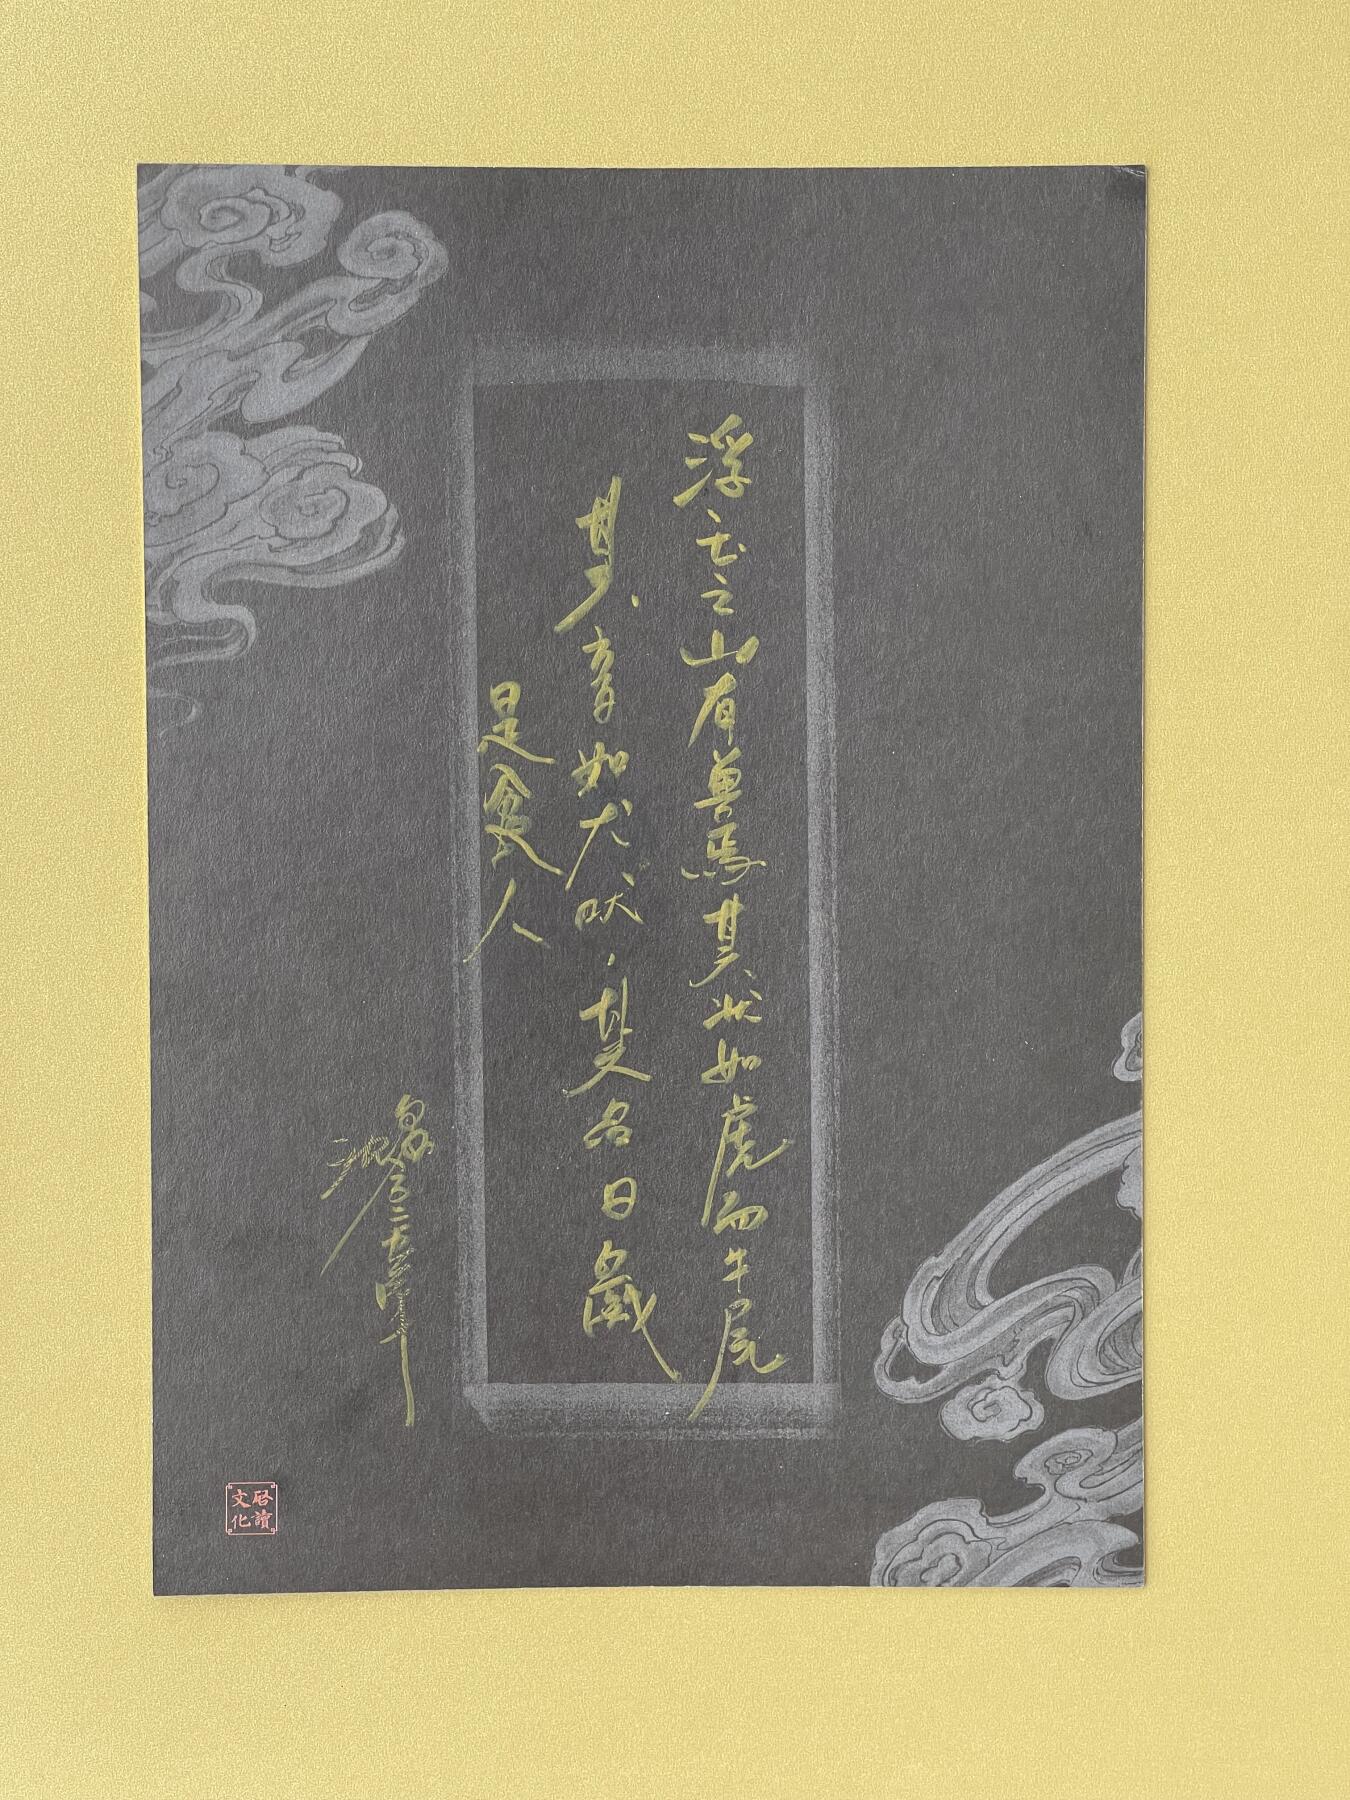 浮玉之山有兽焉其状如虎而牛尾
其音如犬吠，其名曰彘
是食人
啓讀
文化